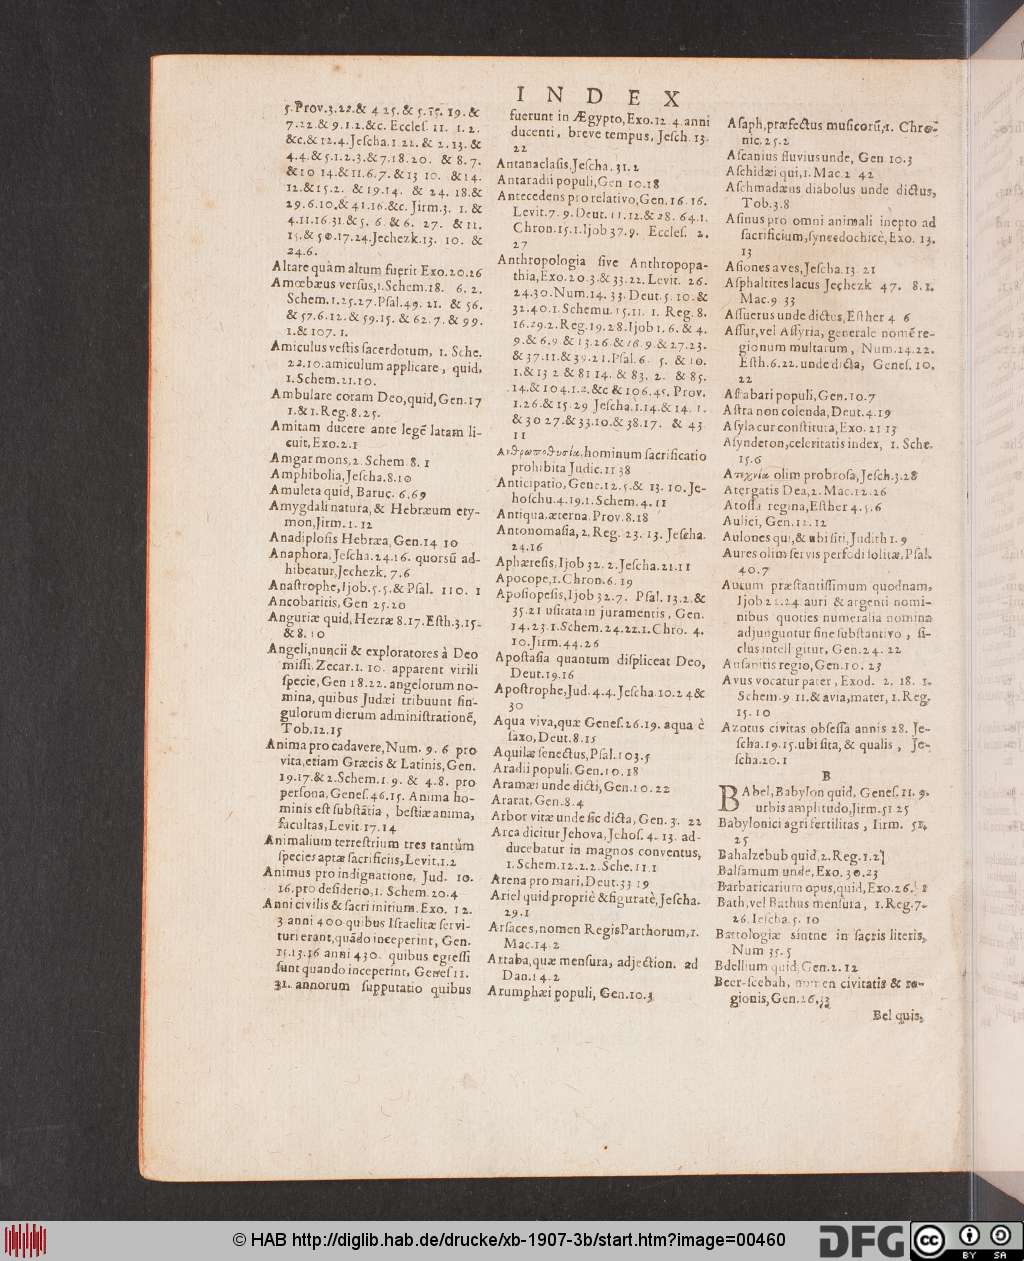 INDEX
5. Prov. 3.22. & 4 25. & 5. 15. 19. &
7.22. & 9.1.2. &c. Eccleſ. 11. 1. 2.
&c. & 12.4. Jeſcha. 1 21. & 2. 13. &
4.4. & 5.1.2.3. & 7.18.20. & 8.7.
& 10 14. & 11.6.7. & 13 10. & 14.
12. & 15.2. & 19.14. & 24. 18. &
29.6.10. & 41.16. &c. Jirm. 3. 1. &
4.11.16.31. & 5. 6. & 6. 27. & 11.
15. & 50.17.24. Jechezk. 13. 10. &
24.6.
Altare quàm altum fuerit Exo. 20.26
Amœbæus verſus, 1. Schem. 18. 6. 2.
Schem. 1.25.27. Pſal. 49. 21. & 56.
& 57.6.12. & 59.15. & 62.7. & 99.
1. & 107. 1.
Amiculus veſtis ſacerdotum, 1. Sche.
22.10. amiculum applicare, quid,
1. Schem. 21.10.
Ambulare coram Deo, quid, Gen. 17
1. & 1. Reg. 8.25.
Amitam ducere ante legē latam li-
cuit, Exo. 2.1
Amgar mons, 2. Schem. 8. 1
Amphibolia, Jeſcha. 8.10
Amuleta quid, Baruc. 6.69
Amygdali natura, & Hebræum ety-
mon, Jirm. 1. 12
Anadiploſis Hebræa, Gen. 14 10
Anaphora, Jeſcha. 24.16. quorsū ad-
hibeatur, Jechezk. 7.6
Anaſtrophe, Ijob. 5.5. & Pſal. 110. 1
Ancobaritis, Gen 25.20
Anguriæ quid, Hezræ 8.17. Eſth. 3.15.
& 8. 10
Angeli, nuncii & exploratores à Deo
miſſi. Zecar. 1. 10. apparent virili
ſpecie, Gen 18.22. angelorum no-
mina, quibus Judæi tribuunt ſin-
gulorum dierum adminiſtrationē,
Tob. 12.15
Anima pro cadavere, Num. 9. 6 pro
vita, etiam Græcis & Latinis, Gen.
19.17. & 2. Schem. 1. 9. & 4.8. pro
perſona, Geneſ. 46.15. Anima ho-
minis eſt ſubſtātia, beſtiæ anima,
facultas, Levit. 17.14
Animalium terreſtrium tres tantùm
ſpecies aptæ ſacrificiis, Levit. 1.2
Animus pro indignatione, Jud. 10.
16. pro deſiderio, 1. Schem. 20.4
Anni civilis & ſacri initium. Exo. 12.
3 anni 400 quibus Iſraelitæ ſervi-
turi erant, quādo inceperint, Gen.
15.13.16 anni 430. quibus egreſſi
ſunt quando inceperint, Geneſ 11.
31. annorum ſupputatio quibus
fuerunt in Ægypto, Exo. 12 4. anni
ducenti, breve tempus, Jeſch. 13.
22
Antanaclaſis, Jeſcha. 31.2
Antaradii populi, Gen 10.18
Antecedens pro relativo, Gen. 16.16.
Levit. 7.9. Deut. 11.12. & 28. 64. 1.
Chron. 15.1. Ijob 37.9. Eccleſ. 2.
27
Anthropologia ſive Anthropopa-
thia, Exo. 20.3. & 33.22. Levit. 26.
24.30. Num. 14. 33. Deut. 5. 10. &
32.40. 1. Schemu. 15.11. 1. Reg. 8.
16.29. 2. Reg. 19.28. Ijob 1. 6. & 4.
9. & 6.9 & 13.26. & 16.9. & 27.23.
& 37.11. & 39.21. Pſal. 6. 5. & 10.
1. & 13 2 & 81 14. & 83. 2. & 85.
14. & 104.1.2. &c & 106.45. Prov.
1.26. & 15.29 Jeſcha. 1.14. & 14. 1.
& 30 27. & 33.10. & 38.17. & 43
11
Ανθρωποθυσία, hominum ſacrificatio
prohibita Judic. 11 38
Anticipatio, Gene. 12.5. & 13. 10. Je-
hoſchu. 4.19. 1. Schem. 4. 11
Antiqua, æterna. Prov. 8.18
Antonomaſia, 2. Reg. 23. 13. Jeſcha.
24.16
Aphæreſis, Ijob 32. 2. Jeſcha. 21.11
Apocope, 1. Chron. 6. 19
Apoſiopeſis, Ijob 32.7. Pſal. 13.2. &
35.21 uſitata in juramentis, Gen.
14.23. 1. Schem. 24.22. 1. Chro. 4.
10. Jirm. 44.26
Apoſtaſia quantum diſpliceat Deo,
Deut. 19.16
Apoſtrophe, Jud. 4.4. Jeſcha. 10.24 &
30
Aqua viva, quæ Geneſ. 26.19. aqua è
ſaxo, Deut. 8.15
Aquilæ ſenectus, Pſal. 103.5
Aradii populi. Gen. 10.18
Aramæi unde dicti, Gen. 10.22
Ararat, Gen. 8.4
Arbor vitæ unde ſic dicta, Gen. 3. 22
Arca dicitur Jehova, Jehoſ. 4. 13. ad-
ducebatur in magnos conventus,
1. Schem. 12.2.2. Sche. 11 1
Arena pro mari, Deut. 33 19
Ariel quid propriè & figuratè, Jeſcha.
29.1
Arſaces, nomen Regis Parthorum, 1.
Mac. 14.2
Artaba, quæ menſura, adjection. ad
Dan. 14.2
Arumphæi populi, Gen. 10.3
Aſaph, præfectus muſicorū, 1. Chro-
nic. 25.2
Aſcanius fluvius unde, Gen 10.3
Aſchidæi qui, 1. Mac. 2 42
Aſchmadæus diabolus unde dictus,
Tob. 3.8
Aſinus pro omni animali inepto ad
ſacrificium, ſynecdochicè, Exo. 13.
13
Aſiones aves, Jeſcha. 13. 21
Aſphaltites lacus Jechezk 47. 8. 1.
Mac. 9 33
Aſſuerus unde dictus, Eſther 4 6
Aſſur, vel Aſſyria, generale nomē re-
gionum multarum, Num. 24.22.
Eſth. 6.22. unde dicta, Geneſ. 10.
22
Aſtabari populi, Gen. 10.7
Aſtra non colenda, Deut. 4.19
Aſyla cur conſtituta, Exo. 21 13
Aſyndeton, celeritatis index, 1. Sche.
15.6
Ατεχνία olim probroſa, Jeſch. 3.28
Atergatis Dea, 2. Mac. 12.26
Atoſſa regina, Eſther 4. 5.6
Aulici, Gen. 12.12
Aulones qui, & ubi ſiti, Judith 1. 9
Aures olim ſervis perfodi ſolitæ, Pſal.
40.7
Autum præſtantiſſimum quodnam,
Ijob 22.24 auri & argenti nomi-
nibus quoties numeralia nomina
adjunguntur ſine ſubſtantivo, ſi-
clus intelligitur, Gen. 24. 22
Auſanitis regio, Gen. 10. 23
Avus vocatur pater, Exod. 2. 18. 1.
Schem. 9 11. & avia, mater, 1. Reg.
15.10
Azotus civitas obſeſſa annis 28. Je-
ſcha. 19.15. ubi ſita, & qualis, Je-
ſcha. 20.1
B
BAbel, Babylon quid, Geneſ. 11. 9.
urbis amplitudo, Jirm. 51 25
Babylonici agri fertilitas, Iirm. 51.
25
Bahalzebub quid, 2. Reg. 1.2
Balſamum unde, Exo. 30.23
Barbaricarium opus, quid, Exo. 26. 1
Bath, vel Bathus menſura, 1. Reg. 7.
26. Ieſcha. 5. 10
Battologiæ ſintne in ſacris literis,
Num 35.5
Bdellium quid, Gen. 2. 12
Beer-ſcebah, nomen civitatis & re-
gionis, Gen. 26.33
Bel quis,
© HAB http://diglib.hab.de/drucke/xb-1907-3b/start.htm?image=00460
DFG
cc BY SA